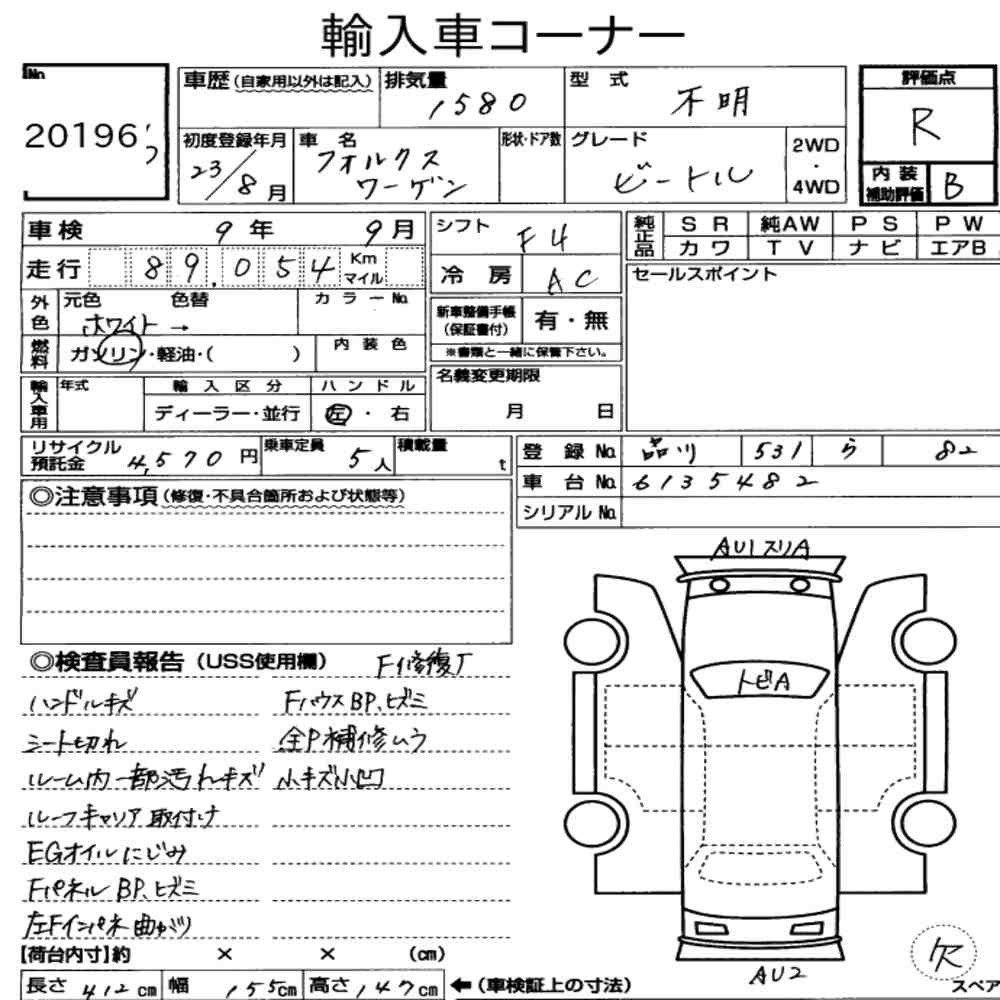 輸入車コーナー
No 車歴(自家用以外は記入) 排気量 1580 型式 不明 評価点 R
20196
初度登録年月 23/8月 車名 フォルクスワーゲン 形状・ドア数 グレード ビートル 2WD・4WD 内装補助評価 B
車検 9年 9月 シフト F4 純正品 SR 純AW PS PW
カワ TV ナビ エアB
走行 89,054 Km マイル 冷房 AC セールスポイント
外色 元色 色替 カラーNo.
ホワイト →
新車整備手帳(保証書付) 有・無
燃料 ガソリン・軽油・( ) 内装色
※書類と一緒に保管下さい。
輸入車用 年式 輸入区分 ハンドル 名義変更期限
ディーラー・並行 左・右 月 日
リサイクル預託金 4,570円 乗車定員 5人 積載量 t
登録No. 品川 531 ら 82
車台No. 6135482
シリアルNo.
◎注意事項(修復・不具合箇所および状態等)
AU1スリA
◎検査員報告(USS使用欄) F修復了
ハンドルキズ FハウスBP、ヒズミ
トビA
シート切れ 全P補修ムラ
ルーム内一部汚れキズ 小キズ小凹
ルーフキャリア取付け
EGオイルにじみ
FパネルBP、ヒズミ
左Fインパネ曲がり
【荷台内寸】約 × × (cm)
欠
AU2
スペア
長さ 412cm 幅 155cm 高さ 147cm ←(車検証上の寸法)